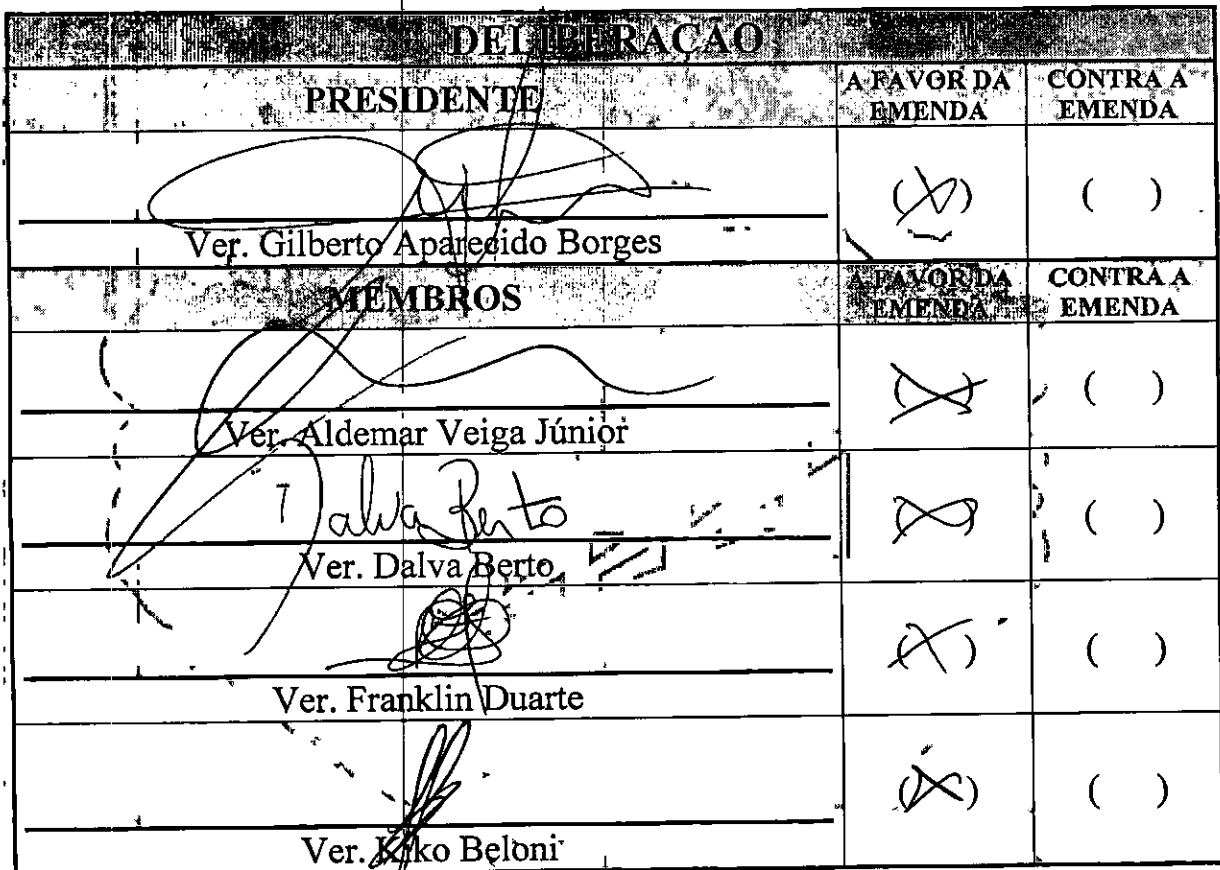 DELIBERAÇÃO
PRESIDENTE
A FAVOR DA EMENDA
CONTRA A EMENDA
(X)
( )
Ver. Gilberto Aparecido Borges
MEMBROS
A FAVOR DA EMENDA
CONTRA A EMENDA
(X)
( )
Ver. Aldemar Veiga Júnior
Dalva Berto
(X)
( )
Ver. Dalva Berto
(X)
( )
Ver. Franklin Duarte
(X)
( )
Ver. Kiko Beloni